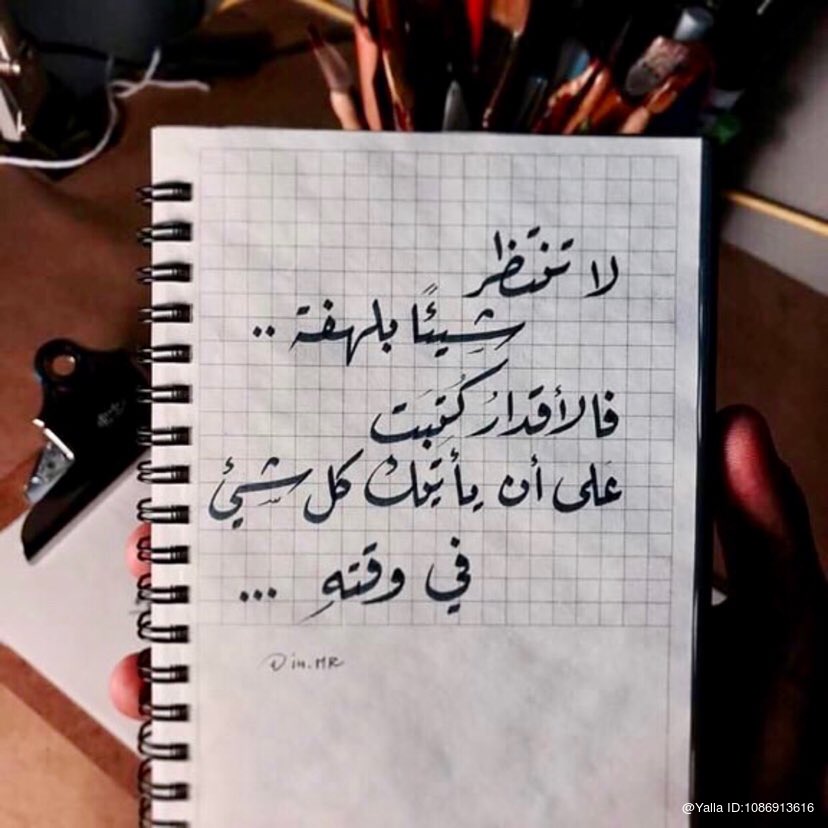 لا تنتظر
شيئًا بلهفة ..
فالأقدارُ كُتِبَت
عَلى أن يأتيك كل شيئ
في وقتهِ ...
@in.MR
@Yalla ID:1086913616